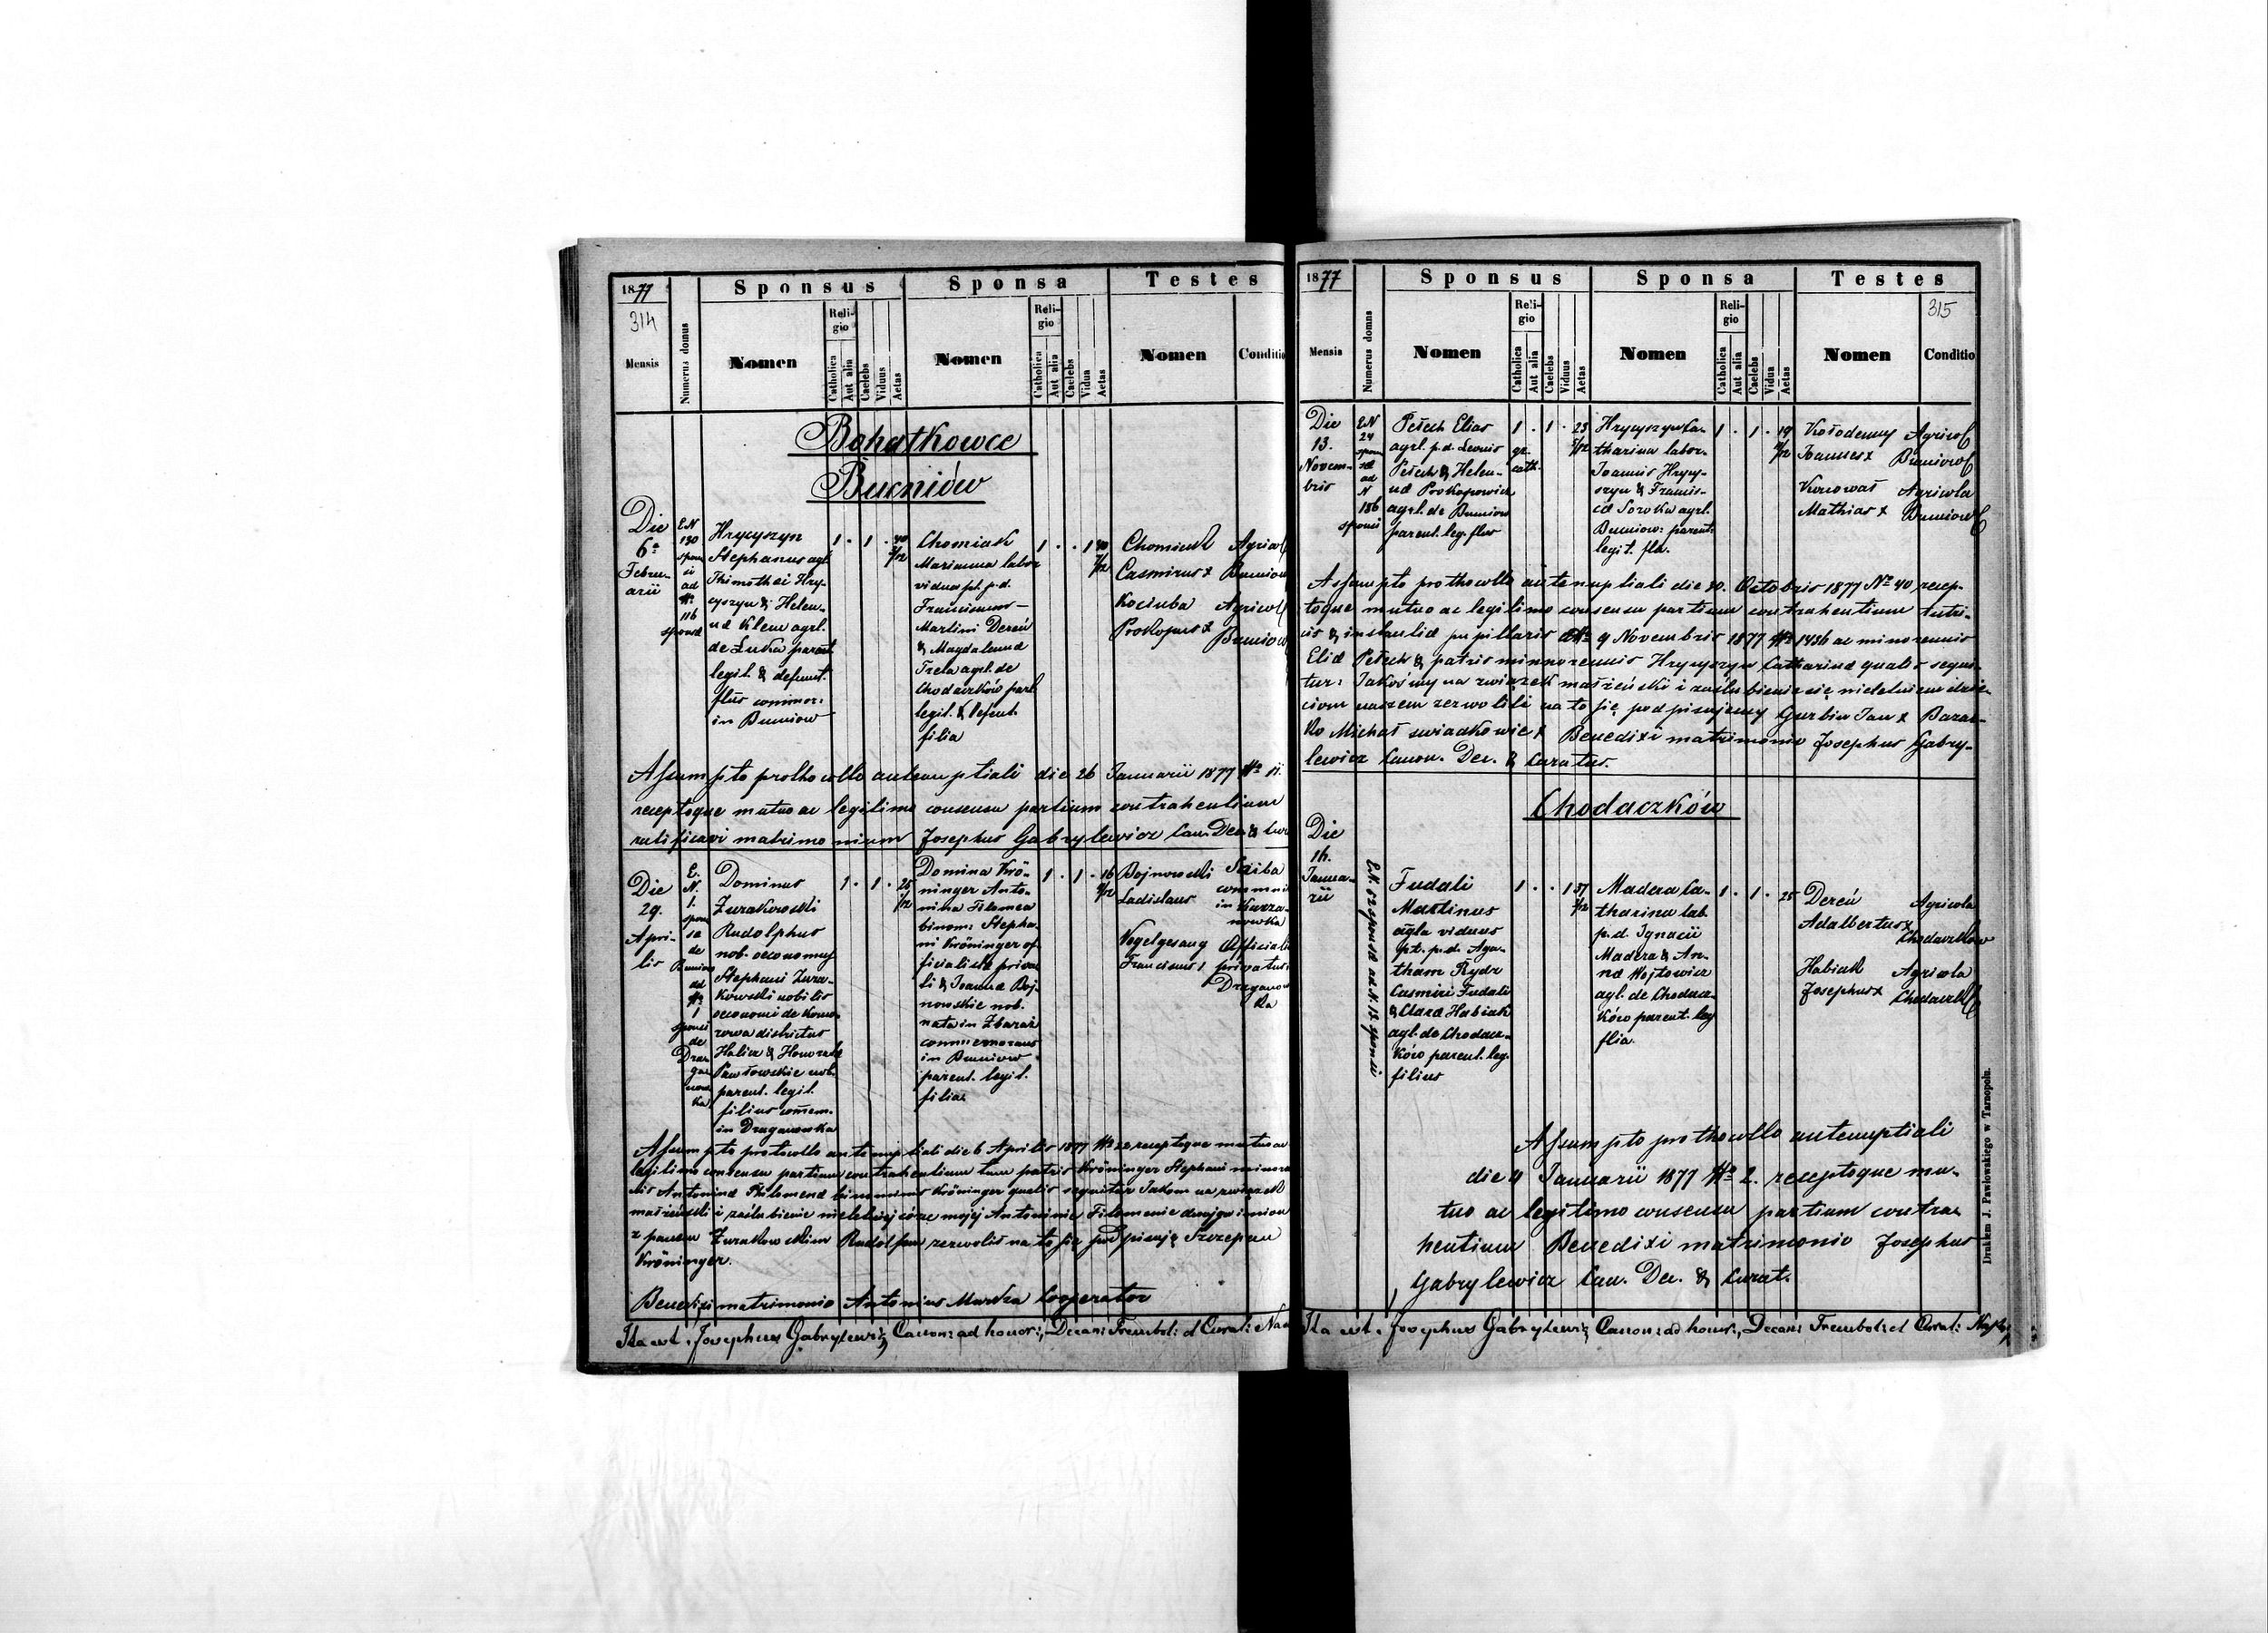 1877
314
Mensis
Numerus domus
Sponsus
Nomen
Religio
Catholica
Aut alia
Caelebs
Viduus
Aetas
Sponsa
Nomen
Religio
Catholica
Aut alia
Caelebs
Vidua
Aetas
Testes
Nomen
Conditio
Bohatkowce
Bucniów
Die
6ª
Febru-
arii
EN
130
spon
si
ad
Nº
116
sponsæ
Hrycyszyn
Stephanus agl.
Thimothei Hry-
cyszyn & Helen-
næ Klem agrl.
de Łuka parent.
legit. & defunct.
flius commor:
in Bucniow
1 . 1 . 40
Chomiak
Marianna labor
vidua pt. p.d.
Franciscum –
Martini Dereń
& Magdalenæ
Trela agrl. de
Chodaczków part.
legit. & Defunt.
filia
1 . . 1 40
Chomiak
Casmirus x
Kociuba
Prokopus x
Agricol
Bucniow
Agricol
Bucniow
Assumpto prothocollo antenuptiali die 26 Januarii 1877 Nº 11.
receptoque mutuo ac legitimo consensu partium contrahentium
ratificavi matrimonium Josephus Gabrylewicz Can. Dec. & Cur
Die
29.
Apri-
lis
E.
N.
1.
spon
sa
de
Bucniow
ad
Nº
1
sponsi
de
Dra-
ga
now
ka
Dominus
Żurakowski
Rudolphus
nob. oeconomus
Stephani Żura-
kowski nobilis
oeconomi de Komo-
rowa districtus
Halicz & Honoratæ
Pawłowskie nob.
parent. legit.
filius comem.
in Draganowka
1 . 1 . 26
Domina Krö-
ninger Anto-
nina Filomea
binom: Stepha-
ni Kröninger of-
ficialistæ priva-
ti & Joannæ Boj-
nowskie nob.
nata in Zbaraż
commemorans
in Bucniow
parent. legit.
filia
1 . 1 . 16
Bojnowski
Ladislaus
Vogelgesang
Franciscus
Scriba
comemn
Officiali
privatus
Dragano
ka
Assumpto protocollo antenuptiali die 6 Aprilis 1877 Nº 22 receptoque mutuo ac
legitimo consensu partium contrahentium tum patris Kröninger Stephani minoren
nis Antoninæ Philomenæ binominis Kröninger qualis sequitur Jakom na związek
małżeński i zaślubienie nieletniej córce mojej Antoninie Filomenie dwojga imion
z panem Żurakowskim Rudolfem zezwolił na to się podpisuję Szczepan
Kröninger.
Benedixi matrimonio Antonius Murkza Cooperator
Ita est. Josephus Gabrylewicz, Canon: ad honor:, Decan: Trembol: et Curat:
1877
Mensis
Numerus domus
Sponsus
Nomen
Religio
Catholica
Aut alia
Caelebs
Viduus
Aetas
Sponsa
Nomen
Religio
Catholica
Aut alia
Caelebs
Vidua
Aetas
Testes
315
Nomen
Conditio
Die
13.
Novem-
bris
EN
24
spon
sæ
ad
N
186
sponsi
Petech Elias
agrl. p.d. Leonis
Petech & Helen-
næ Prokopowicz
agrl. de Bucniow
parent. leg. flius
1 . 1 . 23
gr.
cath.
Hrycyszyn Ca-
tharina labor.
Joannis Hrycy-
szyn & Francis-
cæ Soroka agrl.
Bucniow: parent.
legit. fla.
1 . 1 . 19
Kołodenny
Joannes x
Konował
Mathias x
Agricol
Bucniow
Agricola
Bucniow
Assumpto prothocollo antenuptiali die 30. Octobris 1877 Nº 40 recep-
toque mutuo ac legitimo consensu partium contrahentium tutri-
cis & instantiæ pupillaris dtº 9 Novembris 1877 Nº 1436 ac minorennis
Eliæ Petech & patris minnorennis Hrycyszyn Catharinæ qualis sequi-
tur: Jakośmy na związek małżeński i zaślubienie się nieletniem dzie-
ciom naszem zezwolili na to się podpisujemy Gurbin Jan x Bazar-
ko Michał swiadkowie x Benedixi matrimonio Josephus Gabry-
lewicz Canon. Dec. & Curatus.
Chodaczków
Die
16.
Janua-
rii
EN. 62 sponsæ ad N. 12 sponsi
Fudali
Martinus
agla viduus
pt. p.d. Aga-
tham Rydz
Casmiri Fudali
& Claræ Habiak
agl. de Chodacz-
ków parent. leg.
filius
1 . . 1 37
Madera Ca-
tharina lab.
p.d. Ignacii
Madera & An-
næ Wojtowicz
agl. de Chodacz-
ków parent. leg
flia.
1 . 1 . 25
Dereń
Adalbertus x
Habiak
Josephus x
Agricola
Chodaczkow
Agricola
Chodaczk
Assumpto prothocollo antenuptiali
die 4 Januarii 1877 Nº 2. receptoque mu-
tuo ac legitimo consensu partium contra-
hentium Benedixi matrimonio Josephus
Gabrylewicz Can. Dec. & Curat.
Ita est. Josephus Gabrylewicz, Canon: ad honor:, Decan: Trembol: et Curat:
Drukiem J. Pawłowskiego w Tarnopolu.